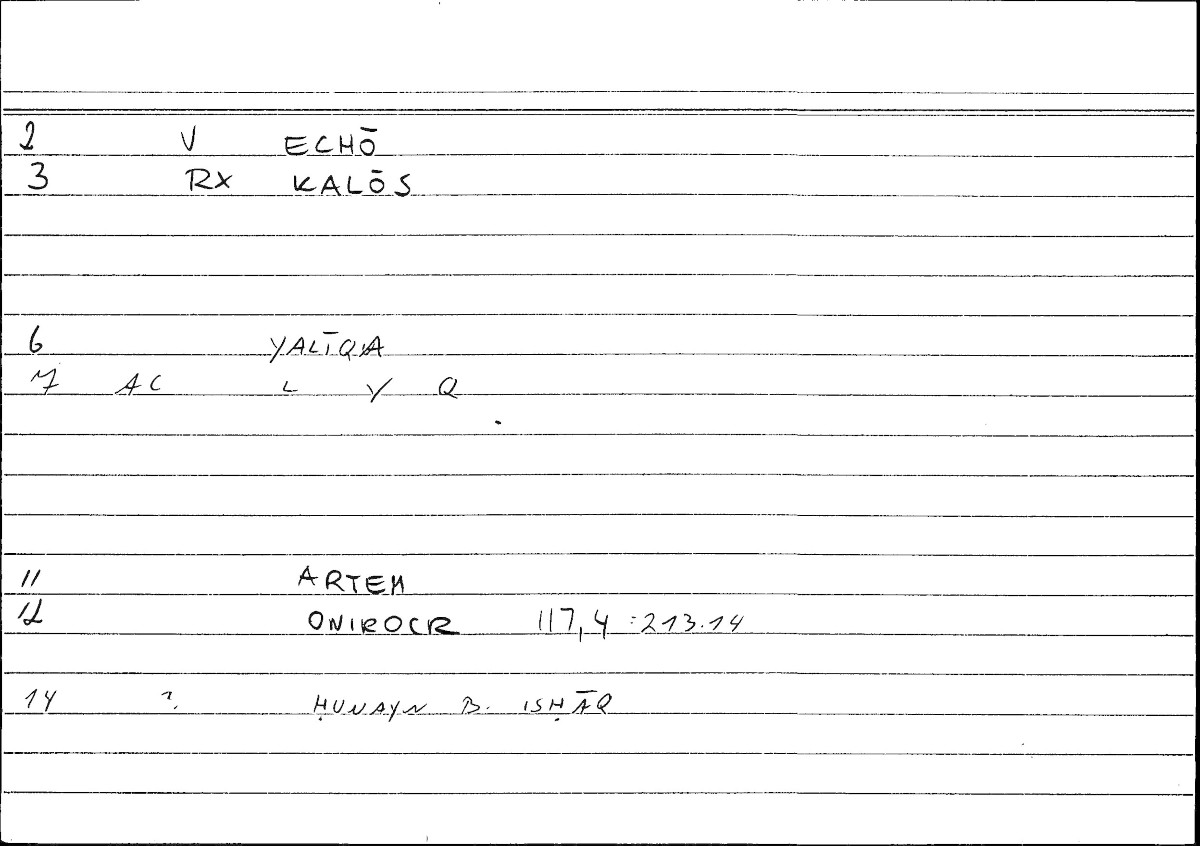 2 V ECHŌ
3 RX KALŌS
6 YALĪQA
7 AC L Y Q
11 ARTEM
12 ONIROCR 117,4 :213.14
14 ?. ḤUNAYN B. ISḤĀQ